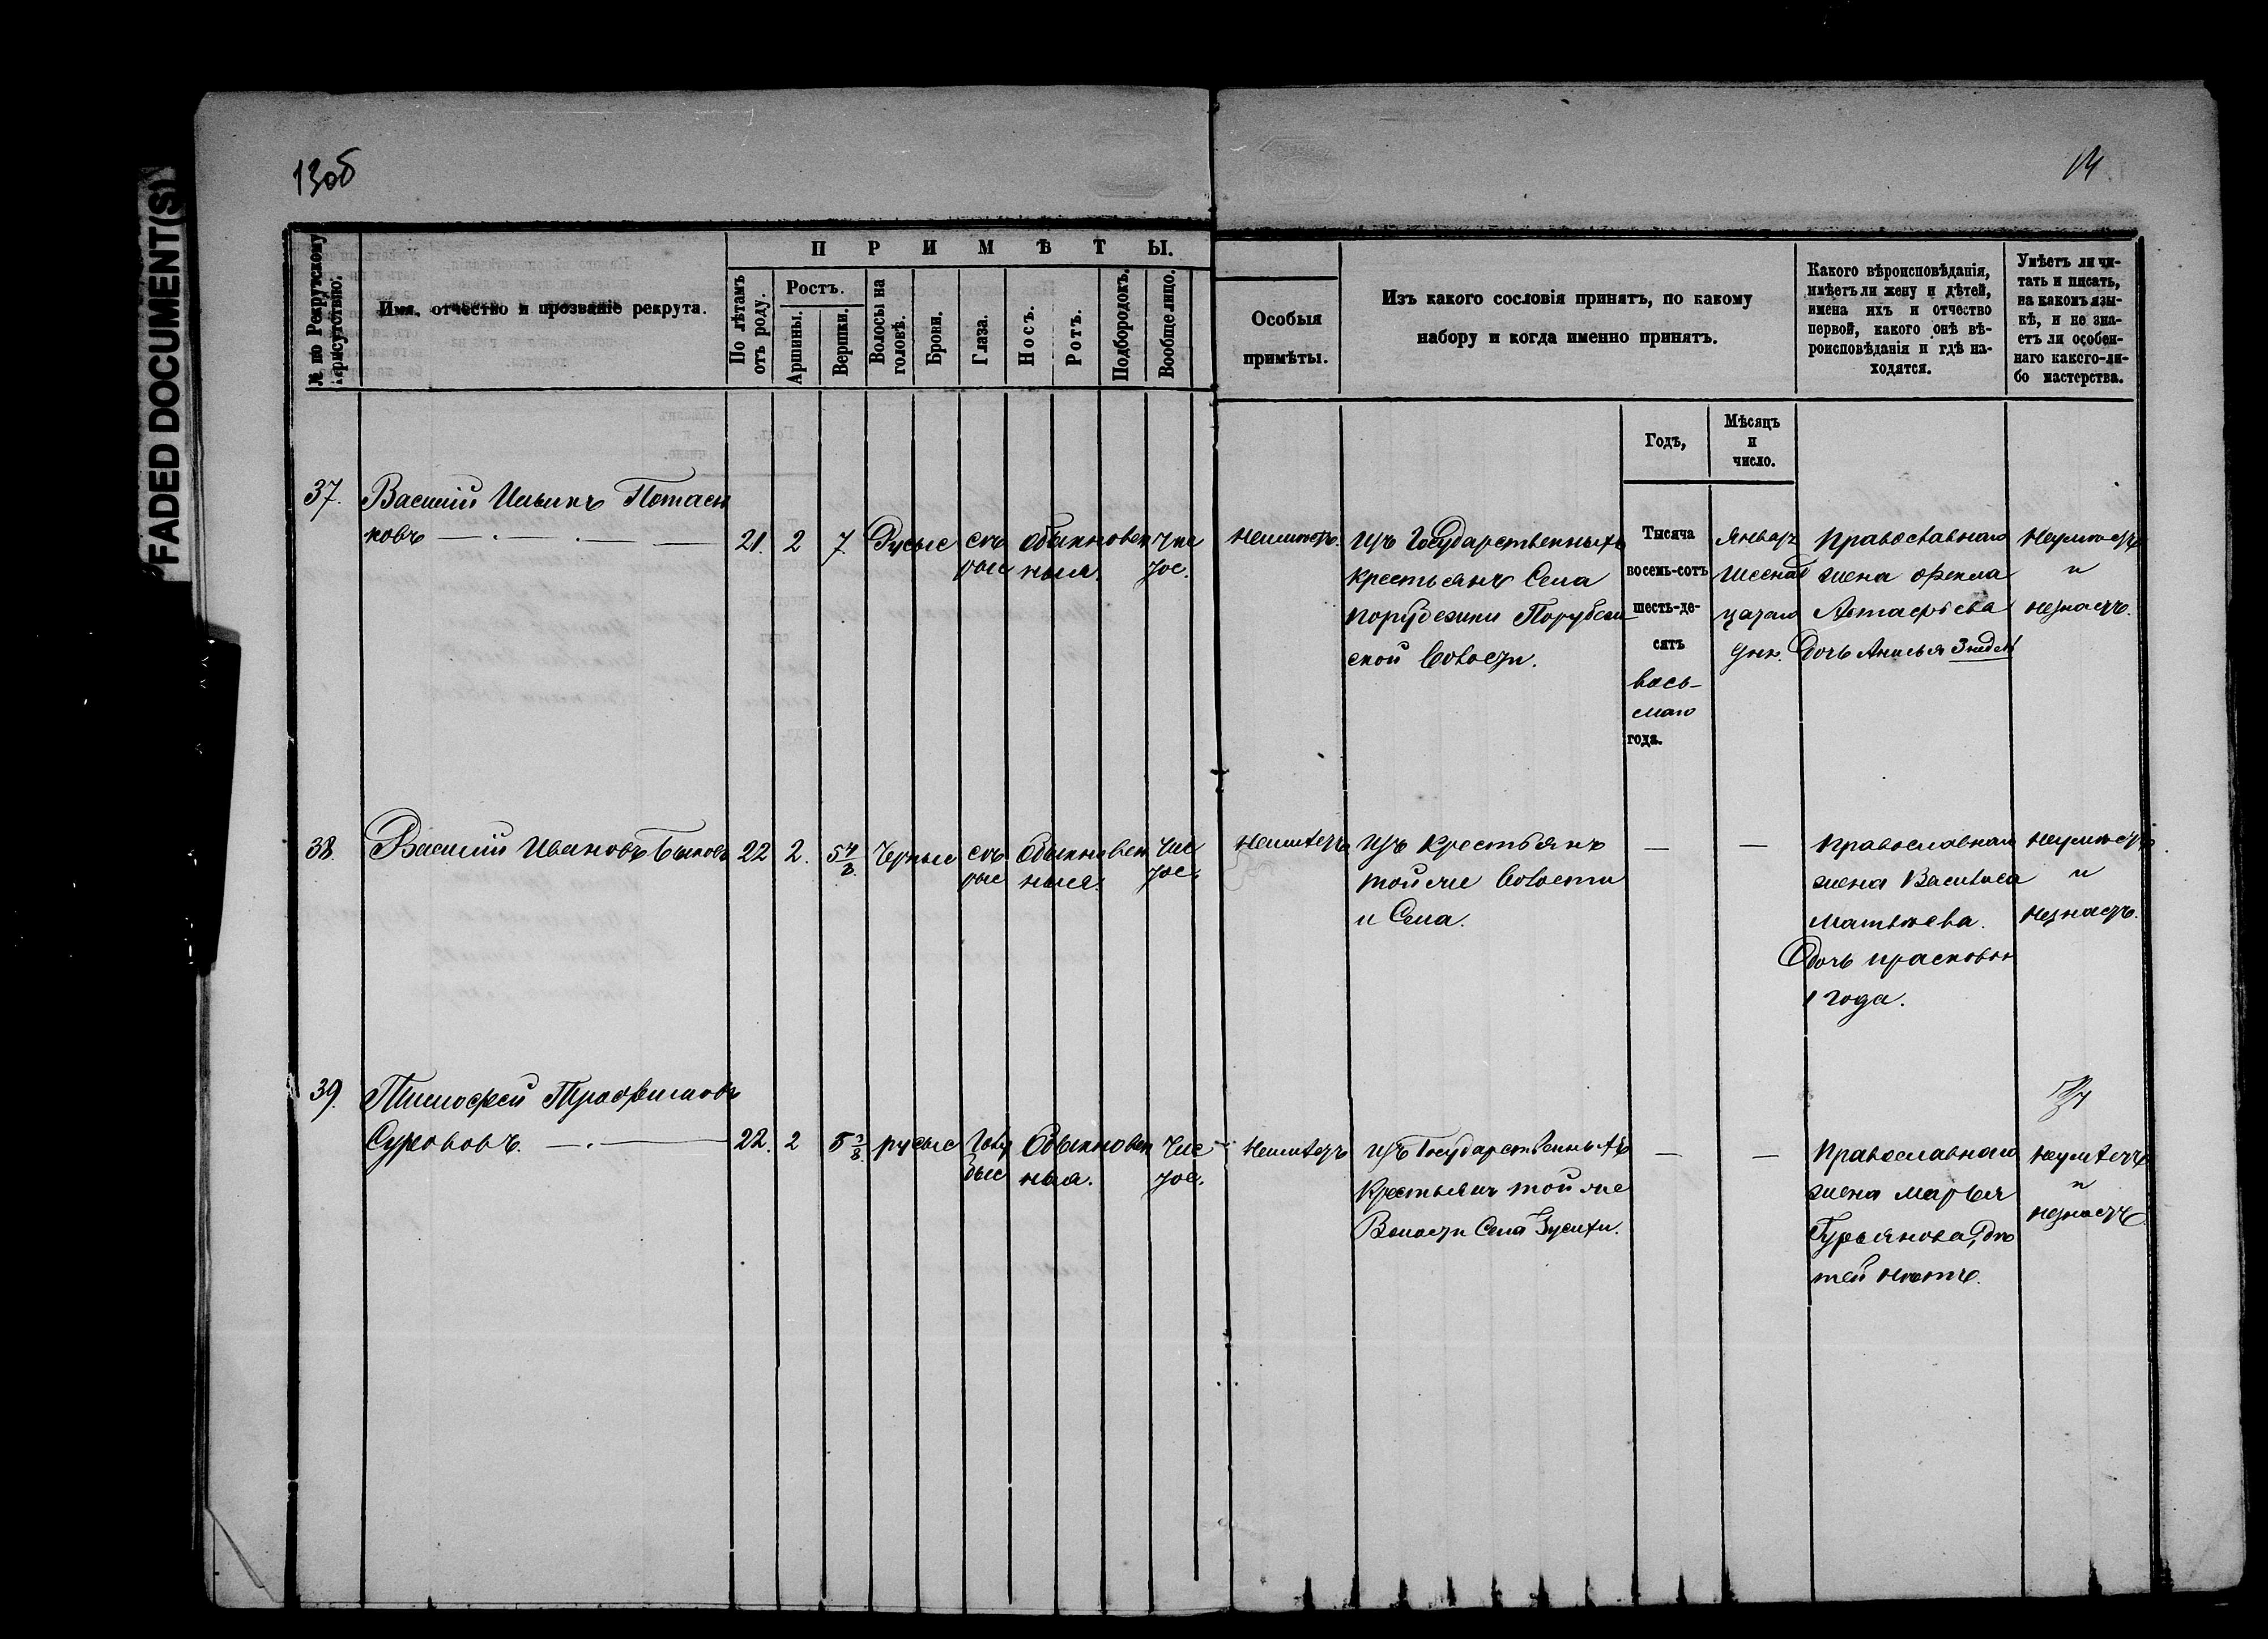 "FADED DOCUMENT(S)"
13об
14
№ по Рекрутскому присутствію.
Имя, отчество и прозваніе рекрута.
ПРИМѢТЫ.
По лѣтамъ отъ роду.
Ростъ.
Аршины.
Вершки.
Волосы на головѣ.
Брови.
Глаза.
Носъ.
Ротъ.
Подбородокъ.
Вообще лицо.
Особыя
примѣты.
Изъ какого сословія принятъ, по какому
набору и когда именно принятъ.
Какого вѣроисповѣданія,
имѣетъ ли жену и дѣтей,
имена ихъ и отчество
первой, какого онѣ вѣ-
роисповѣданія и гдѣ на-
ходятся.
Умѣетъ ли чи-
тать и писать,
на какомъ язы-
кѣ, и не зна-
етъ ли особен-
наго какого-ли-
бо мастерства.
Годъ,
Мѣсяцъ
и
число.
37. Василій Ильинъ Потась
ковъ 21. 2 7 Русые сѣ обыкновен чис
рые ныя. тое.
Неимѣетъ. Изъ Государственныхъ
крестьянъ Села
Порубежки Порубеж
ской Волости.
Тысяча
восемь-сотъ
шесть-де-
сятъ
вось-
маго
года.
Январ
шеснад
цатаго
дня.
Православнаго
жена Фекла
Астафьева
Дочь Анисья 3 недел
Неумѣетъ
и
незнаетъ.
38. Василій Ивановъ Быковъ 22 2. 5 4/8 Черные сѣ Обыкновен Чис
рые ныя. тое.
Неимѣетъ Изъ крестьянъ
той же Волости
и Села.
— —
Православнаго
жена Василиса
Матвѣева.
Дочь Прасковья
1 года.
Неумѣетъ
и
незнаетъ.
39. Тимофей Трофимовъ
Суховъ. 22. 2 5 3/8 русые Голу Обыкновен Чис
бые ныя. тое.
Неимѣетъ Изъ Государственныхъ
Крестьянъ той же
Волости Села Кусихи.
— —
Православнаго
жена Марья
Гурьянова, дѣ
тей нѣтъ.
Неумѣетъ
и
незнаетъ